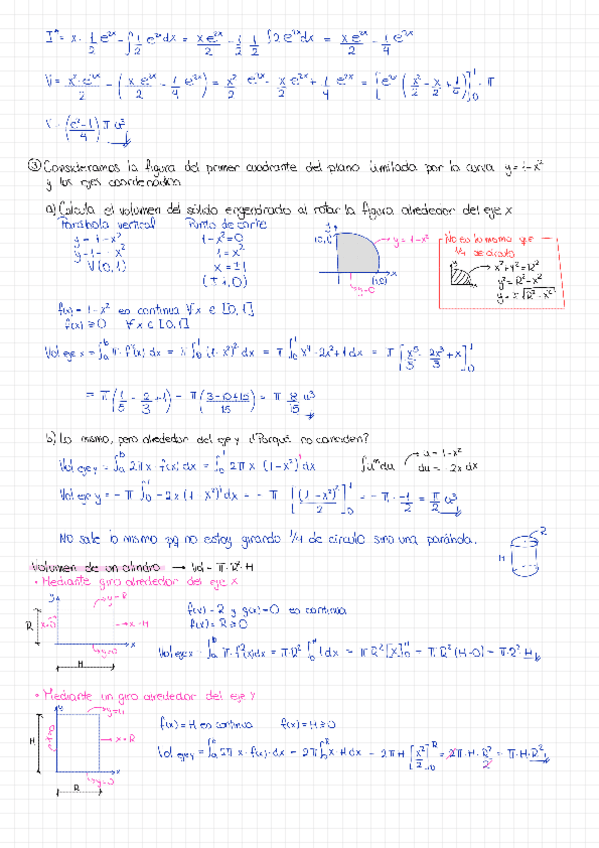 I* = x · 1/2 e^2x − ∫ 1/2 e^2x dx = x e^2x/2 − 1/2 · 1/2 ∫ 2 e^2x dx = x e^2x/2 − 1/4 e^2x
V = x² · e^2x/2 − (x e^2x/2 − 1/4 e^2x) = x²/2 e^2x − x/2 e^2x + 1/4 e^2x = [e^2x (x²/2 − x/2 + 1/4)]₀¹ · π
V = (e²−1/4) π u³
③ Consideramos la figura del primer cuadrante del plano limitada por la curva y = 1 − x²
y los ejes coordenados
a) Calcula el volumen del sólido engendrado al rotar la figura alrededor del eje x
Parábola vertical
y = 1 − x²
y − 1 = − x²
V(0,1)
Punto de corte
1 − x² = 0
1 = x²
x = ±1
(±1,0)
y
(0,1)
y = 1 − x²
x
(1,0)
y=0
No es lo mismo que
1/4 de círculo
x² + y² = R²
y² = R² − x²
y = ± √R² − x²
f(x) = 1 − x² es continua ∀x ∈ [0,1]
f(x) ≥ 0 ∀x ∈ [0,1]
Vol eje x = ∫ₐᵇ π · f²(x) dx = π ∫₀¹ (1 − x²)² dx = π ∫₀¹ x⁴ − 2x² + 1 dx = π [x⁵/5 − 2x³/3 + x]₀¹
= π (1/5 − 2/3 + 1) = π (3 − 10 + 15/15) = π 8/15 u³
b) Lo mismo, pero alrededor del eje y ¿Porqué no coinciden?
Vol eje y = ∫ₐᵇ 2π x · f(x) dx = ∫₀¹ 2π x (1 − x²)¹ dx
∫ uᵐ du
u = 1 − x²
du = −2x dx
Vol eje y = − π ∫₀¹ −2x (1 − x²)¹ dx = − π [(1 − x²)²/2]₀¹ = − π · −1/2 = π/2 u³
No sale lo mismo pq no estoy girando 1/4 de círculo sino una parábola.
R
H
Volumen de un cilindro → Vol = π · R² · H
• Mediante giro alrededor del eje X
y
y = R
R
x=0
x = H
y=0
x
H
f(x) = R y g(x) = 0 es continua
f(x) = R ≥ 0
Vol eje x = ∫ₐᵇ π · f²(x) dx = π R² ∫₀ᴴ 1 dx = π R² [x]₀ᴴ = π · R² (H − 0) = π · R² H
• Mediante un giro alrededor del eje Y
y
y=H
H
x=0
x = R
y=0
x
R
f(x) = H es continua f(x) = H ≥ 0
Vol eje y = ∫ₐᵇ 2π x · f(x) · dx = 2π ∫₀ᴿ x · H dx = 2π H [x²/2]₀ᴿ = 2π · H · R²/2 = π · H · R²